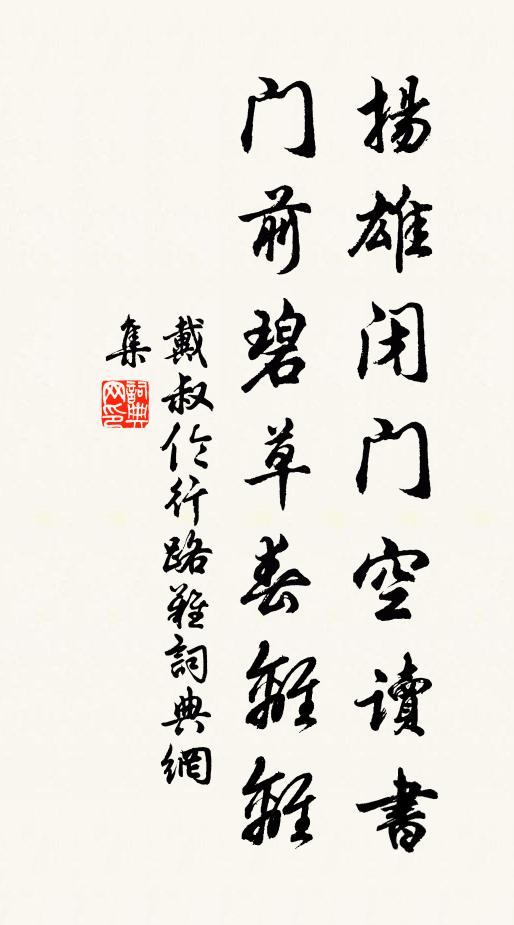 揚雄闭门空讀書
门前碧草春離離
戴叔伦行路難詞典網
集
詞典网印